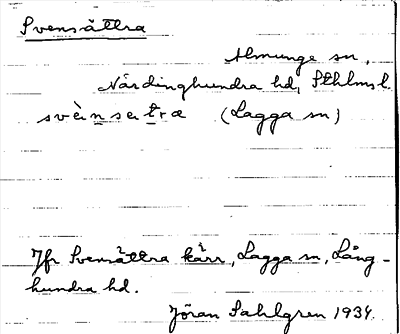 Svensättra
Almunge sn,
Närdinghundra hd, Sthlms l.
svèi̯nsetra (Lagga sn)
Jfr Svensättra kärr, Lagga sn, Lång-
hundra hd.
Jöran Sahlgren 1934.